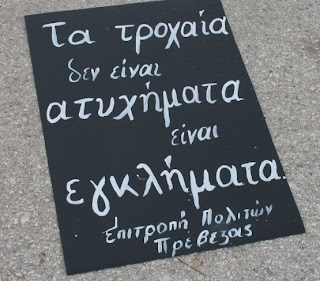 Τα τροχαία
δεν είναι
ατυχήματα
είναι
εγκλήματα
Επιτροπή Πολιτών
Πρέβεζας